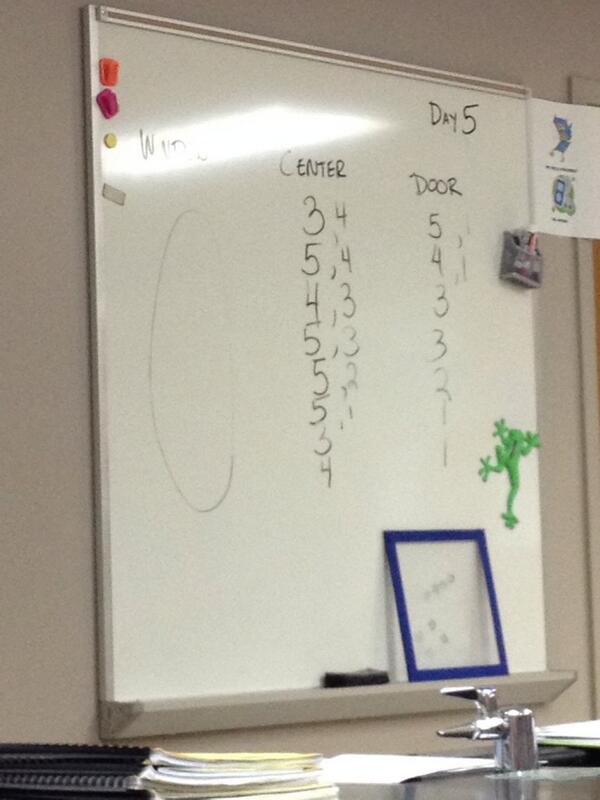 Day 5
Center
Door
3, 4
5, 4
4, 3
5, 3
5, 2
5, 1
3
4
5, 1
4, 1
3
3
2
1
1